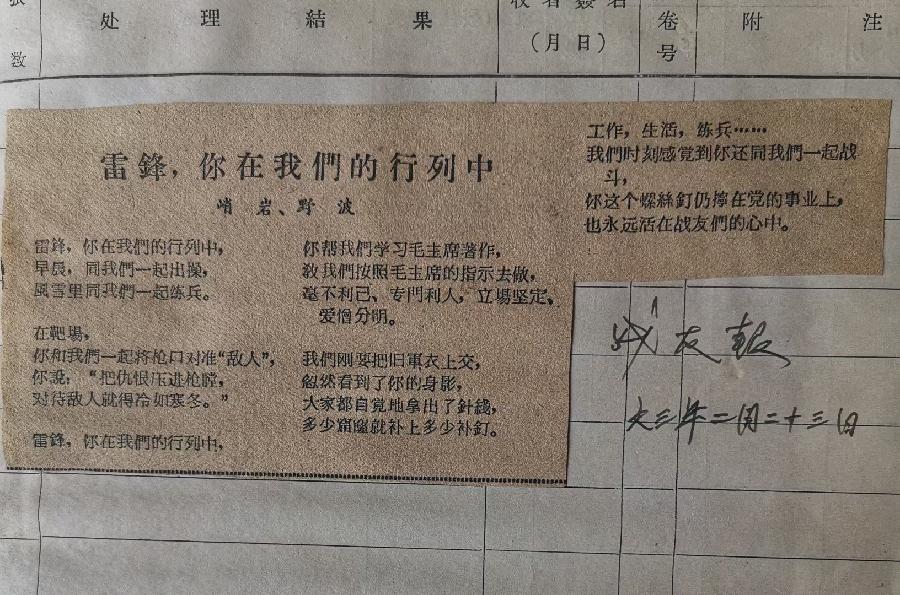 張
数
处理結果
收者簽名
(月日)
卷
号
附注
雷鋒，你在我們的行列中
哨岩、野波
雷鋒，你在我們的行列中，
早晨，同我們一起出操，
風雪里同我們一起练兵。
在靶場，
你和我們一起将枪口对准“敌人”，
你說：“把仇恨压进枪膛，
对待敌人就得冷如寒冬。”
雷鋒，你在我們的行列中，
你帮我們学习毛主席著作，
教我們按照毛主席的指示去做，
毫不利己、专門利人，立場坚定、
爱憎分明。
我們刚要把旧軍衣上交，
忽然看到了你的身影，
大家都自覚地拿出了針綫，
多少窟窿就补上多少补釘。
工作，生活，练兵……
我們时刻感覚到你还同我們一起战
斗，
你这个螺絲釘仍擰在党的事业上，
也永远活在战友們的心中。
战友報
六三年二月二十三日